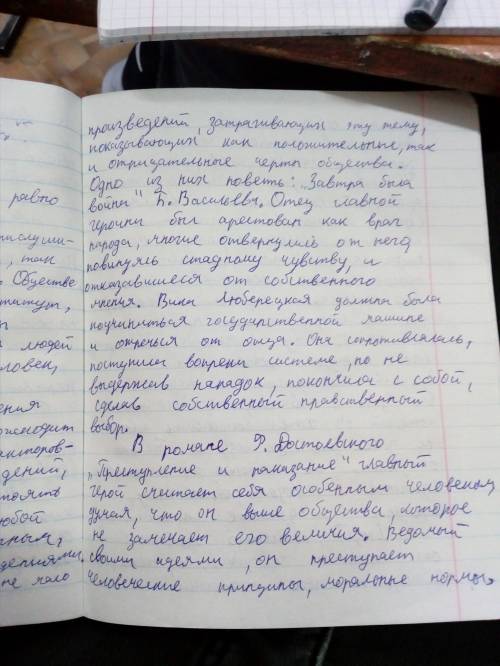 произведений, затрагивающих эту тему,
показывающих как положительные, так
и отрицательные черты общества.
Одно из них повесть: "Завтра была
война" Б. Васильева. Отец главной
героини был арестован как враг
народа, многие отвернулись от него
повинуясь стадному чувству, и
отказавшиеся от собственного
мнения. Вика Люберецкая должна была
подчиниться государственной машине
и отречься от отца. Она сопротивлялась,
поступила вопреки системе, но не
выдержав нападок, покончила с собой,
сделав собственный нравственный
выбор.
В романе Ф. Достоевского
"Преступление и наказание" главный
герой считает себя особенным человеком,
думая, что он выше общества, которое
не замечает его величия. Ведомый
своими идеями, он преступает
человеческие принципы, моральные нормы.
равно
, так
Обществе
людей
ения
дений,
любой
не мало